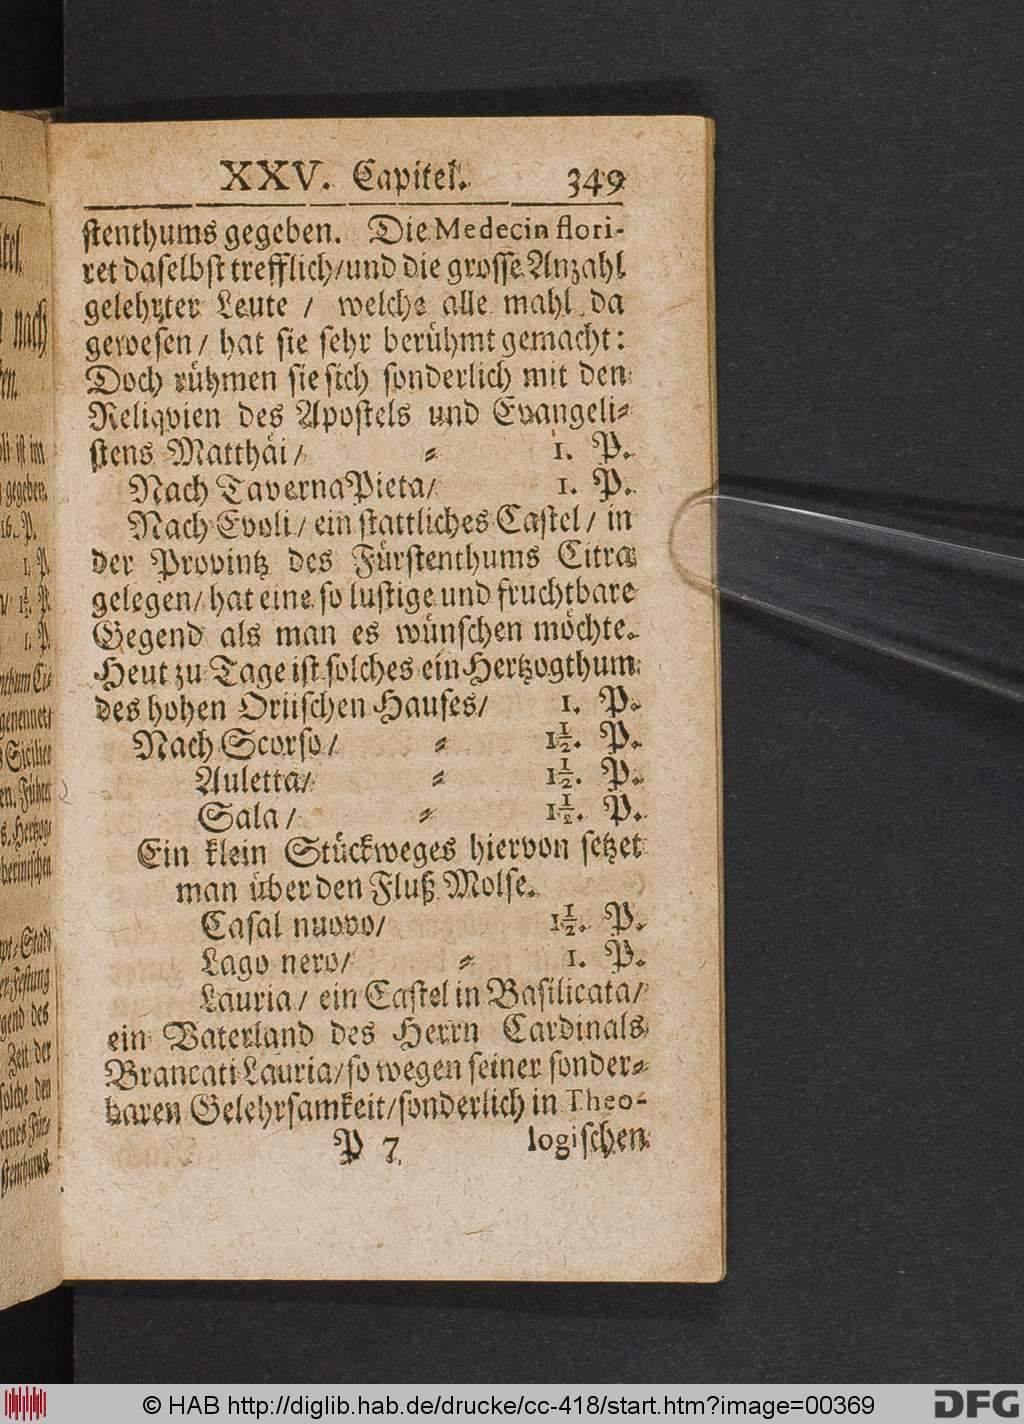 XXV. Capitel. 349
stenthums gegeben. Die Medecin flori-
ret daselbst trefflich/und die grosse Anzahl
gelehrter Leute / welche alle mahl da
gewesen / hat sie sehr berühmt gemacht:
Doch rühmen sie sich sonderlich mit den
Reliqvien des Apostels und Evangeli-
stens Matthäi / - 1. P.
Nach Taverna Pieta/ 1. P.
Nach Evoli / ein stattliches Castel / in
der Provintz des Fürstenthums Citra
gelegen / hat eine so lustige und fruchtbare
Gegend als man es wünschen möchte.
Heut zu Tage ist solches ein Hertzogthum
des hohen Oriischen Hauses/ 1. P.
Nach Scorso / - 1½. P.
Auletta/ - 1½. P.
Sala / - 1½. P.
Ein klein Stückweges hiervon setzet
man über den Fluß Molse.
Casal nuovo/ 1½. P.
Lago nero/ - 1. P.
Lauria / ein Castel in Basilicata/
ein Vaterland des Herrn Cardinals
Brancati Lauria/so wegen seiner sonder-
baren Gelehrsamkeit/sonderlich in Theo-
P 7 logischen
© HAB http://diglib.hab.de/drucke/cc-418/start.htm?image=00369
DFG